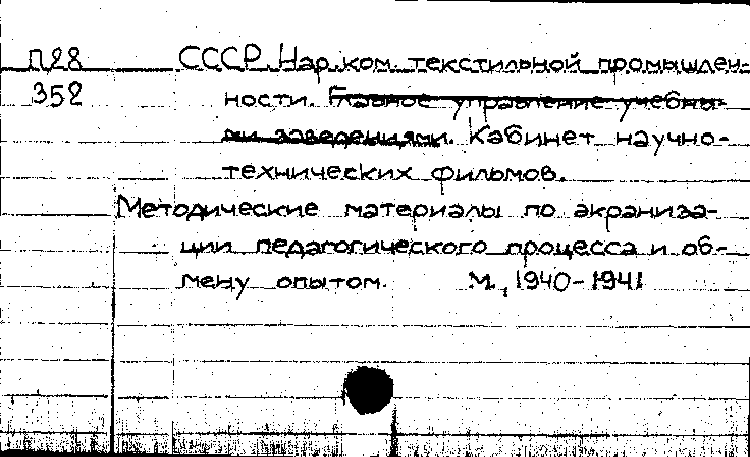 П28 СССР. Нар. ком. текстильной промышлен-
352 ности. Главное управление учебны-
ми заведениями. Кабинет научно-
технических фильмов.
Методические материалы по экраниза-
ции педагогического процесса и об-
мену опытом. М., 1940-1941